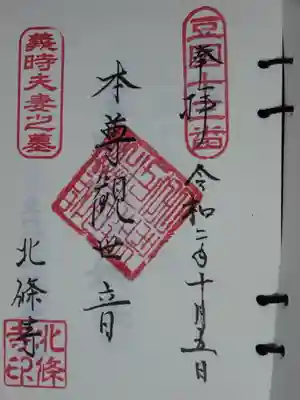 奉拝
令和二年十月五日
本尊観世音
義時夫妻之墓
北條寺
北條寺印